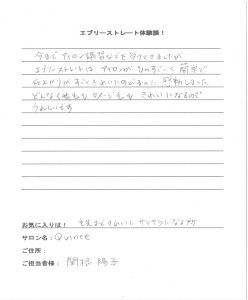 エブリーストレート体験談！
今までアイロン講習などを受けてきましたが
エブリーストレートは アイロンが ものすごーく 簡単で
仕上がりがすごくきれいにのびるのに 感動しました
どんなくせ毛も ダメージ毛も きれいになるので
うれしいです
お気に入りは！ 毛先まできれいに サラサラになる所
サロン名：Quince
ご住所：
ご担当者様：関根 陽子